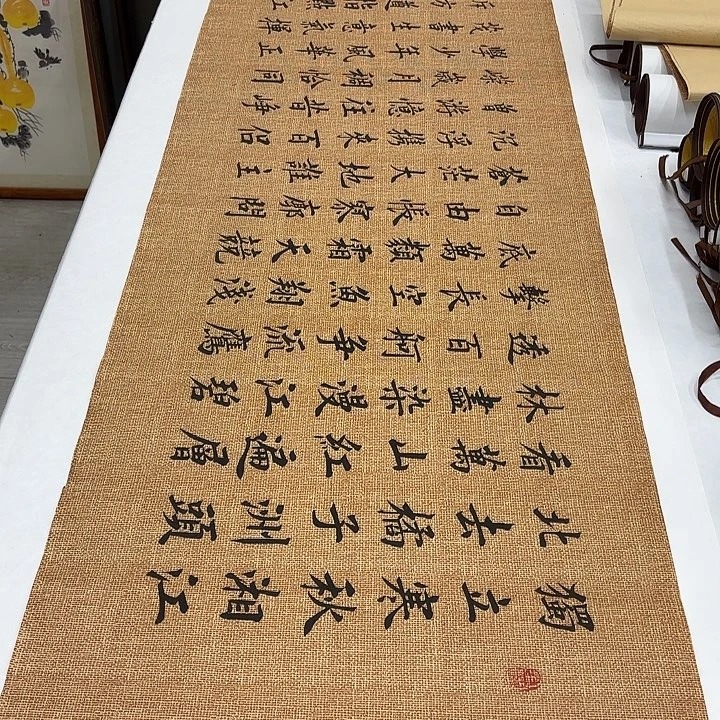 獨立寒秋湘江
北去橘子洲頭
看萬山紅遍層
林盡染漫江碧
透百舸爭流鷹
擊長空魚翔淺
底萬類霜天競
自由悵寥廓問
蒼茫大地誰主
沉浮攜來百侶
曾游憶往昔崢
嶸歲月稠恰同
學少年風華正
茂書生意氣揮
斥方遒指點江